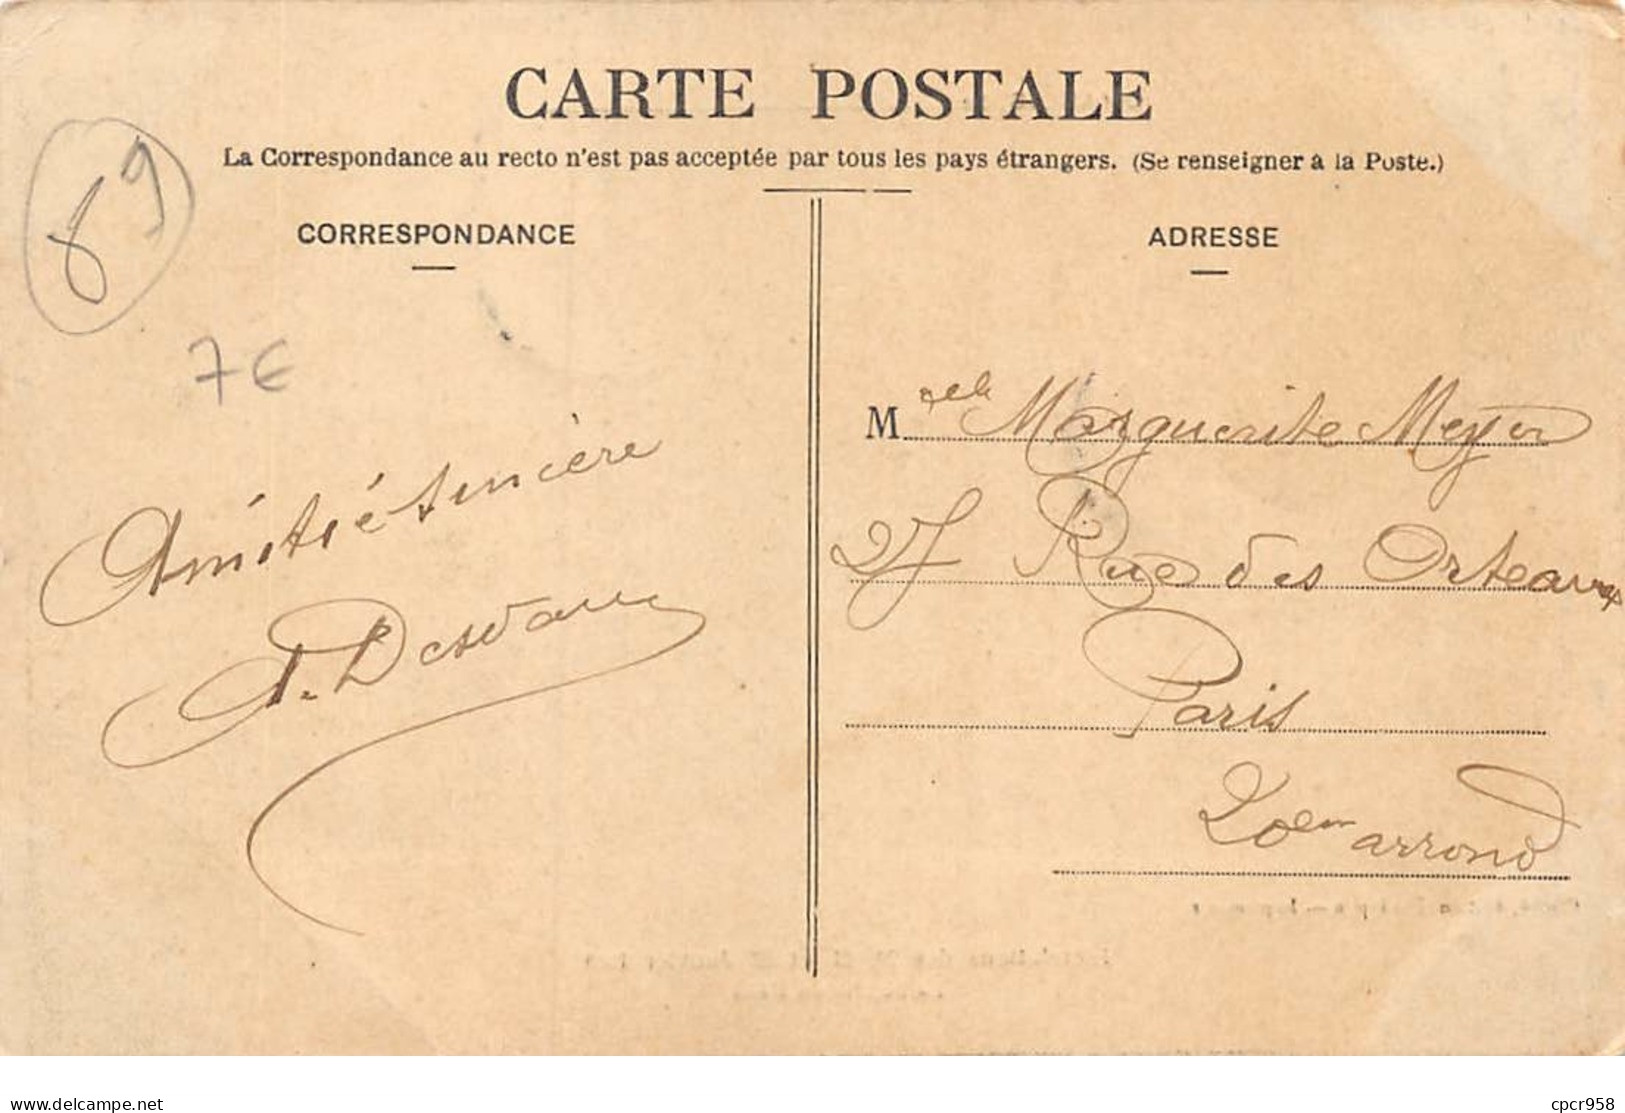 CARTE POSTALE
La Correspondance au recto n'est pas acceptée par tous les pays étrangers. (Se renseigner à la Poste.)
CORRESPONDANCE
ADRESSE
89
7€
Amitié sincère
A. Desvaux
Melle Marguerite Meyer
27 Rue des Orteaux
Paris
20em arrond
delcampe.net
cpcr958